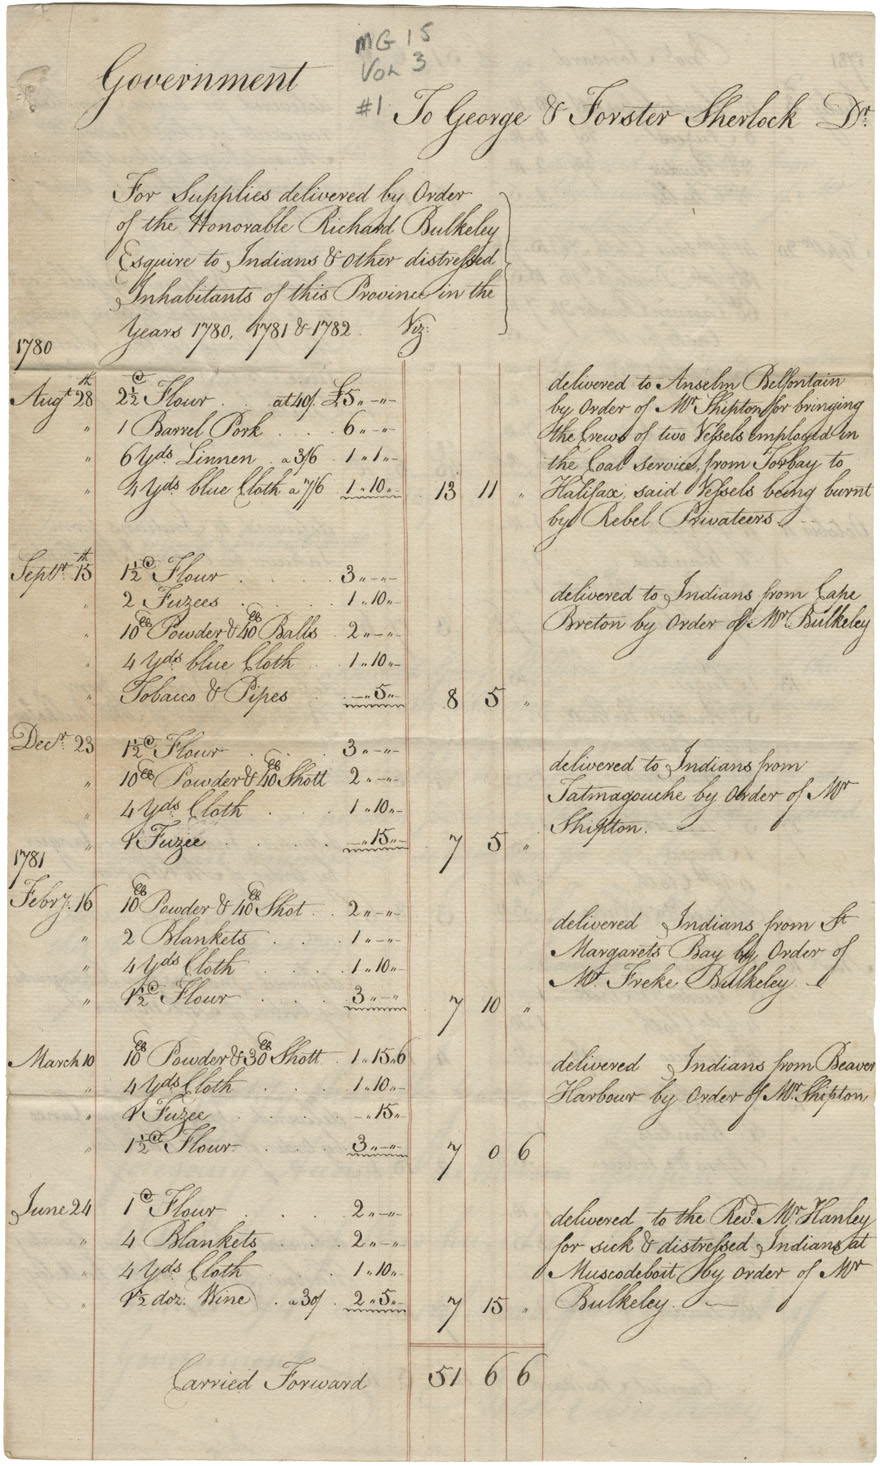 MG 15
Vol 3
#1
Government
To George & Forster Sherlock Dr.
For Supplies delivered by Order
of the Honorable Richard Bulkeley
Esquire to Indians & other distressed
Inhabitants of this Province in the
Years 1780, 1781 & 1782. Viz:
1780
Augt 28th 2½ C Flour . at 40/. £5 "-"- delivered to Anselm Belfontain
" 1 Barrel Pork . . . 6 "-"- by Order of Mr Shipton for bringing
" 6 Yds Linnen . a 3/6 1 " 1 "- the Crews of two Vessels employed in
" 4 Yds blue Cloth a 7/6 1 " 10 "- 13 11 " the Coal service, from Torbay to
Halifax, said Vessels being burnt
by Rebel Privateers.
Septr 15th 1½ C Flour . . . . 3 "-"-
" 2 Fuzees . . . . 1 " 10 "- delivered to Indians from Cape
" 10 lb Powder & 40 lb Balls 2 "-"- Breton by Order of Mr Bulkeley
" 4 Yds blue Cloth . 1 " 10 "-
" Tobacco & Pipes . . - " 5 "- 8 5 "
Decr 23 1½ C Flour . . . 3 "-"-
" 10 lb Powder & 40 lb Shott 2 "-"- delivered to Indians from
" 4 Yds Cloth . . . 1 " 10 "- Tatmagouche by Order of Mr
" 1 Fuzee . . . - " 15 "- 7 5 " Shipton.
1781
Febry. 16 10 lb Powder & 40 lb Shot . 2 "-"-
" 2 Blankets . . . 1 "-"- delivered Indians from St
" 4 Yds Cloth . . . 1 " 10 "- Margarets Bay by Order of
" 1½ C Flour . . . 3 "-"- 7 10 " Mr. Freke Bulkeley
March 10 10 lb Powder & 30 lb Shott . 1 " 15 " 6 delivered Indians from Beaver
" 4 Yds Cloth . . . 1 " 10 "- Harbour by Order of Mr. Shipton
" 1 Fuzee . . . - " 15 "-
" 1½ C Flour . . . 3 "-"- 7 0 6
June 24 1 C Flour . . . 2 "-"- delivered to the Revd. Mr Hanley
" 4 Blankets . . . 2 "-"- for sick & distressed Indians at
" 4 Yds Cloth . . . 1 " 10 "- Muscodeboit by Order of Mr
" 1½ doz. Wine . a 30/ 2 " 5 "- 7 15 " Bulkeley.
Carried Forward 51 6 6